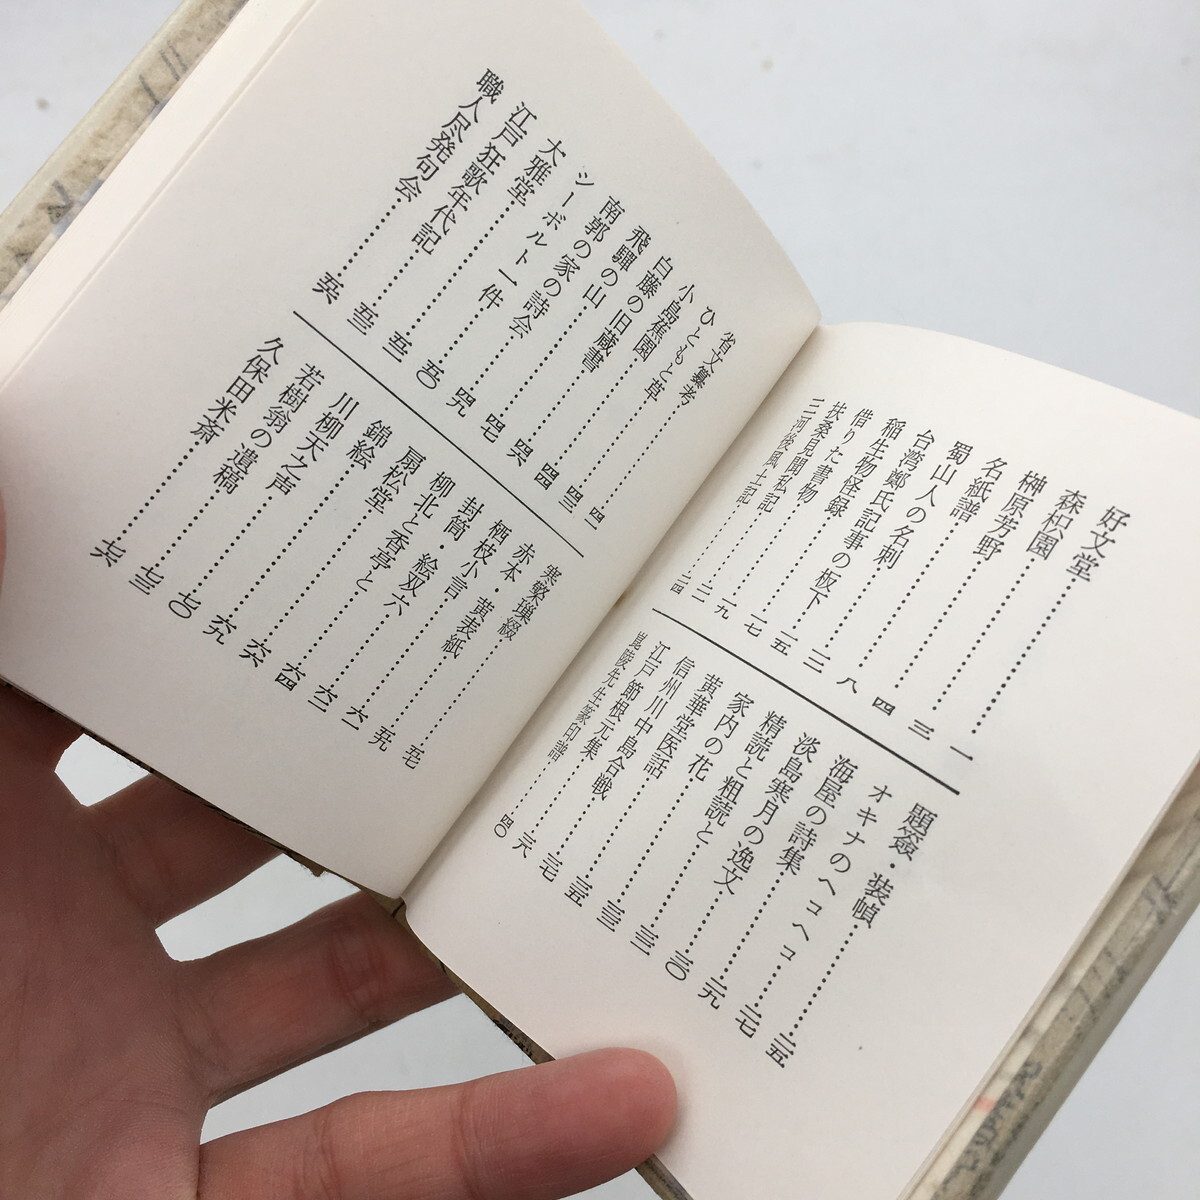 好文堂……一
森枳園……三
榊原芳野……四
名紙譜……八
蜀山人の名刺……一二
台湾鄭氏記事の板下……一五
稲生物怪録……一七
借りた書物……一九
扶桑見聞私記……二一
三河後風土記……二四
題簽・装幀……二五
オキナのヘコヘコ……二七
海屋の詩集……二九
淡島寒月の逸文……三〇
精読と粗読と……三二
家内の花……三三
黄華堂医話……三五
信州川中島合戦……三七
江戸節根元集……三八
毘陵先生篆印譜……四〇
省文纂考……四一
ひともと草……四三
小島蕉園……四四
白藤の旧蔵書……四六
飛騨の山……四七
南郭の家の詩会……四九
シーボルト一件……五〇
大雅堂……五二
江戸狂歌年代記……五三
職人尽発句会……五六
寒繁璅綴……五七
赤本・黄表紙……五九
栖枝小言……六一
封筒・絵双六……六二
柳北と香亭と……六四
扇松堂……六六
錦絵……六九
川柳天之声……七〇
若樹翁の遺稿……七三
久保田米斎……七六